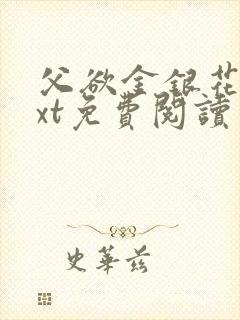 父欲金銀花
xt免費閱讀
史華茲